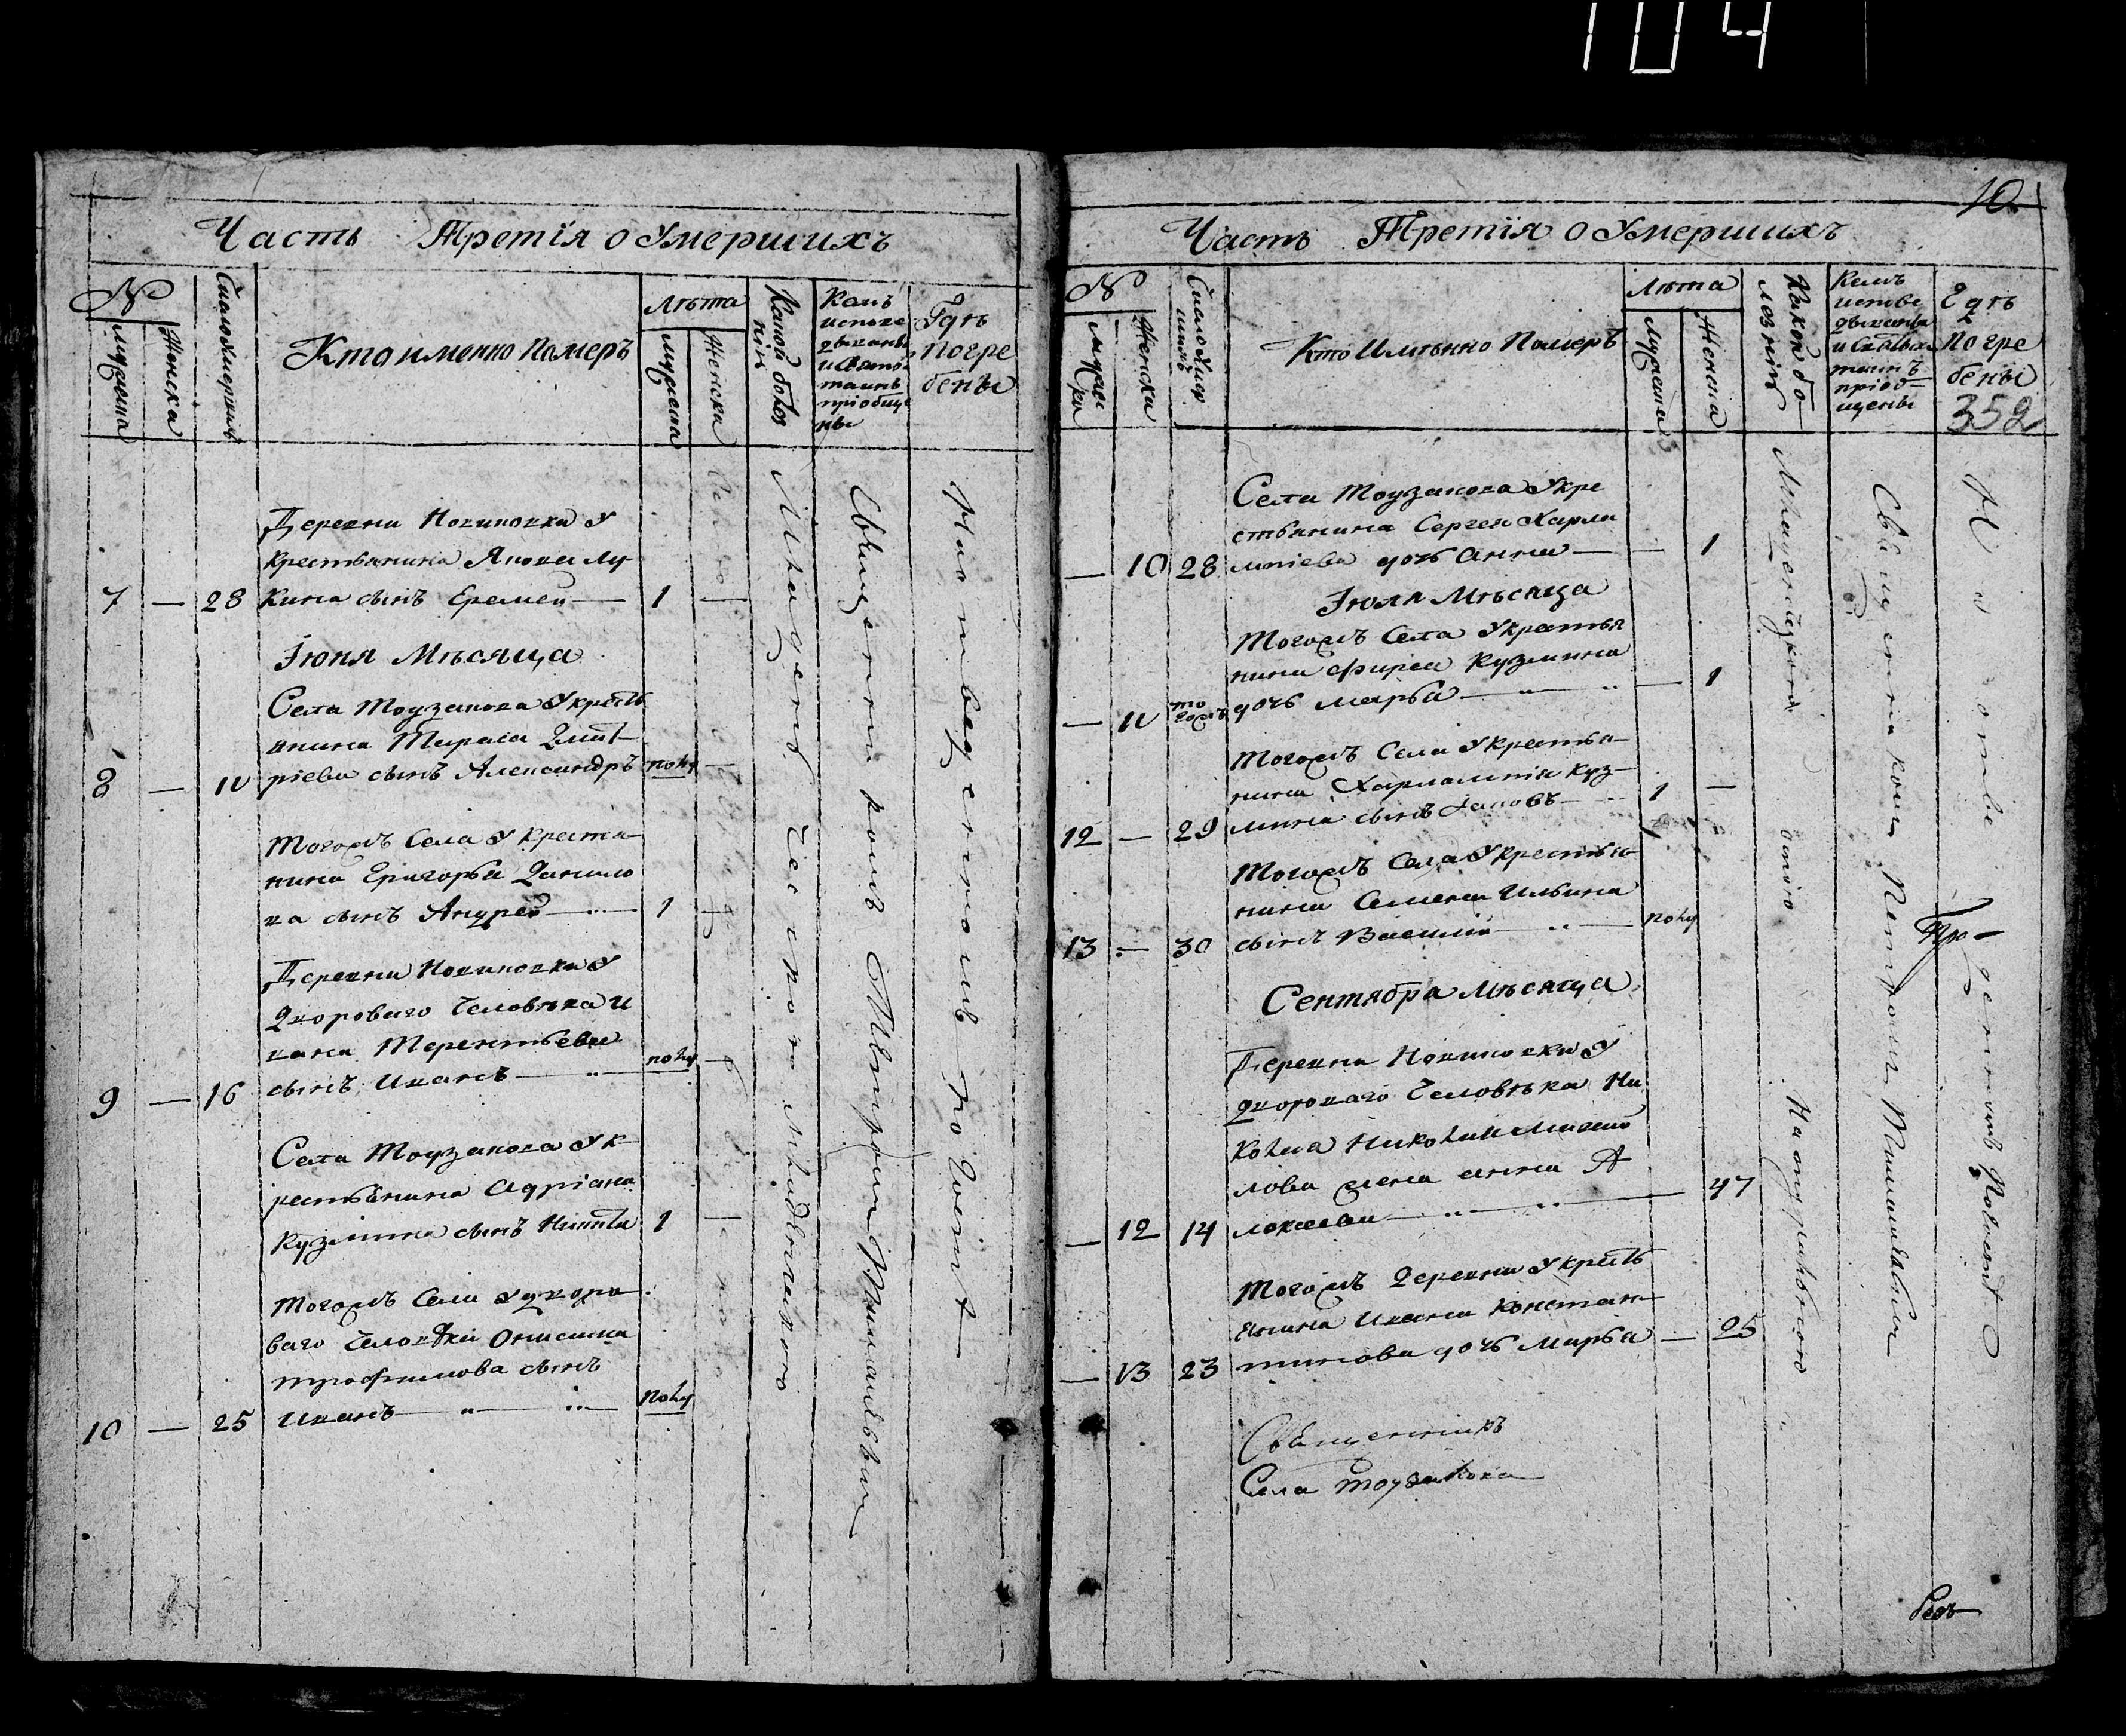 104
Часть Третія о Умершихъ
№
мужеска
женска
Кто именно Померъ
Лѣта
мужеска
женска
Какой болез
нію
Кемъ
испове
дываны
и Свято
таинъ
пріобще
ны
Гдѣ
Погре
бены
Деревни Новиновки у
крестьянина Якова Лу
7 — 28 кина сынъ Еремей — 1 —
Іюня Мѣсяца
Села Тоузакова у кресть
янина Тараса Дмит
8 — 11 ріева сынъ Александръ полу —
Тогожъ Села у крестья
нина Григорья Данило
ва сынъ Андрей — 1 —
Деревни Новиновки у
Двороваго Человѣка И
вана Терентьева
9 — 16 сынъ Иванъ — полу —
Села Тоузакова у к
рестьянина Адріана
Кузмина сынъ Никита 1 —
Тогожъ Села у дворо
ваго Человѣка Онисима
трофимова сынъ
10 — 25 Иванъ — полу
Младенческою
Священникомъ Петромъ
На отведенномъ
10
Часть Третія о Умершихъ
№
мужес
ка
женска
Кто Имѣнно Померъ
Лѣта
Мужеска
Женска
Какою бо
лезнію
Кемъ
испове
дываны
и Святыхъ
таинъ
пріоб
щены
Гдѣ
Погре
бены
352
Села Тоузакова у кре
стьянина Сергея Харла
— 10 28 мпіева дочь Анна — — 1
Іюля Мѣсяца
Тогожъ Села у крестья
нина Фирса Кузмина
— 11 то
гожъ дочь Марфа — — 1
Тогожъ Села у крестья
нина Харлампія Куз
12 — 29 мина сынъ Іаковъ — 1 —
Тогожъ Села у крестья
нина Семена Ильина
13 — 30 сынъ Василій — полу
Сентября Мѣсяца
Деревни Новиновки у
двороваго Человѣка Ни
колая
лова жена Анна А
— 12 14 лексеева — 47
Тогожъ Деревни у кресть
янина Ивана Констан
— 13 23 тинова дочь Марфа — 25
Младенческою
Священникомъ Петромъ
Священникъ
Села Тоузакова